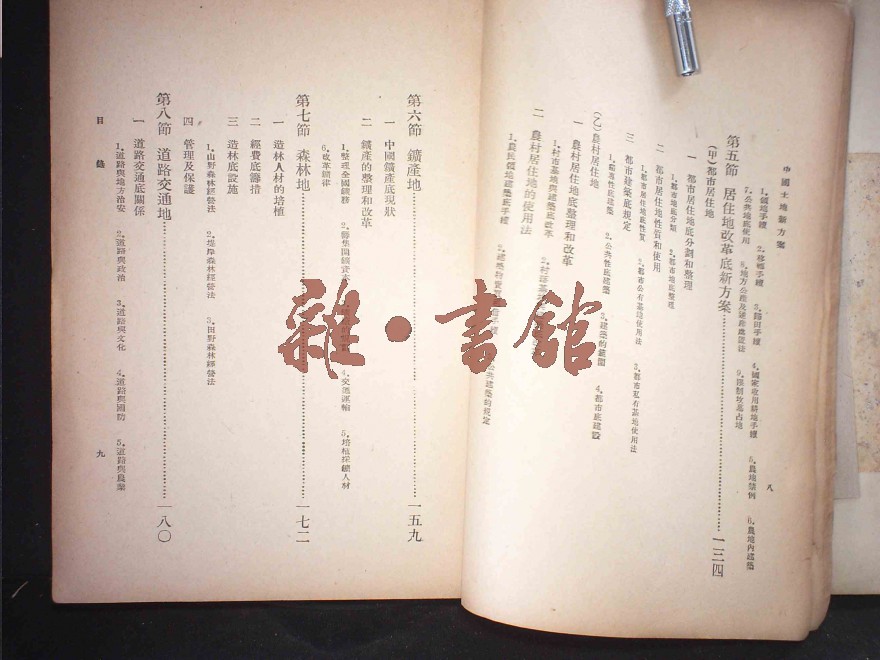 中國土地新方案
八
1.領地手續 2.移鄉手續 3.歸田手續 4.國家收用耕地手續 5.農地禁例 6.農地內建築
7.公共地底使用 8.地方公產及逆產處置法 9.限制攻墓占地
第五節 居住地改革底新方案……一三四
(甲)都市居住地
一 都市居住地底分劃和整理
1.都市地底分類 2.都市地底整理
二 都市居住地性質和使用
1.都市居住地底性質 2.都市公有基地使用法 3.都市私有基地使用法
三 都市建築底規定
1.箱專性底建築 2.公共性底建築 3.建築的範圍 4.都市底建設
(乙)農村居住地
一 農村居住地底整理和改革
1.村市基地與建築底改革 2.村落基
二 農村居住地的使用法
1.農民領地建築底手續 2.建築物 公共建築的規定
第六節 鑛產地……一五九
一 中國鑛產底現狀
二 鑛產的整理和改革
1.整理全國鑛務 2.籌集開鑛資本 4.交通運輸 5.培植採鑛人材
6.改革鑛律
第七節 森林地……一七二
一 造林人材的培植
二 經費底籌措
三 造林底設施
四 管理及保護
1.山野森林經營法 2.堤岸森林經營法 3.田野森林經營法
第八節 道路交通地……一八〇
一 道路交通底關係
1.道路與地方治安 2.道路與政治 3.道路與文化 4.道路與國防 5.道路與農業
目錄
九
雜·書館